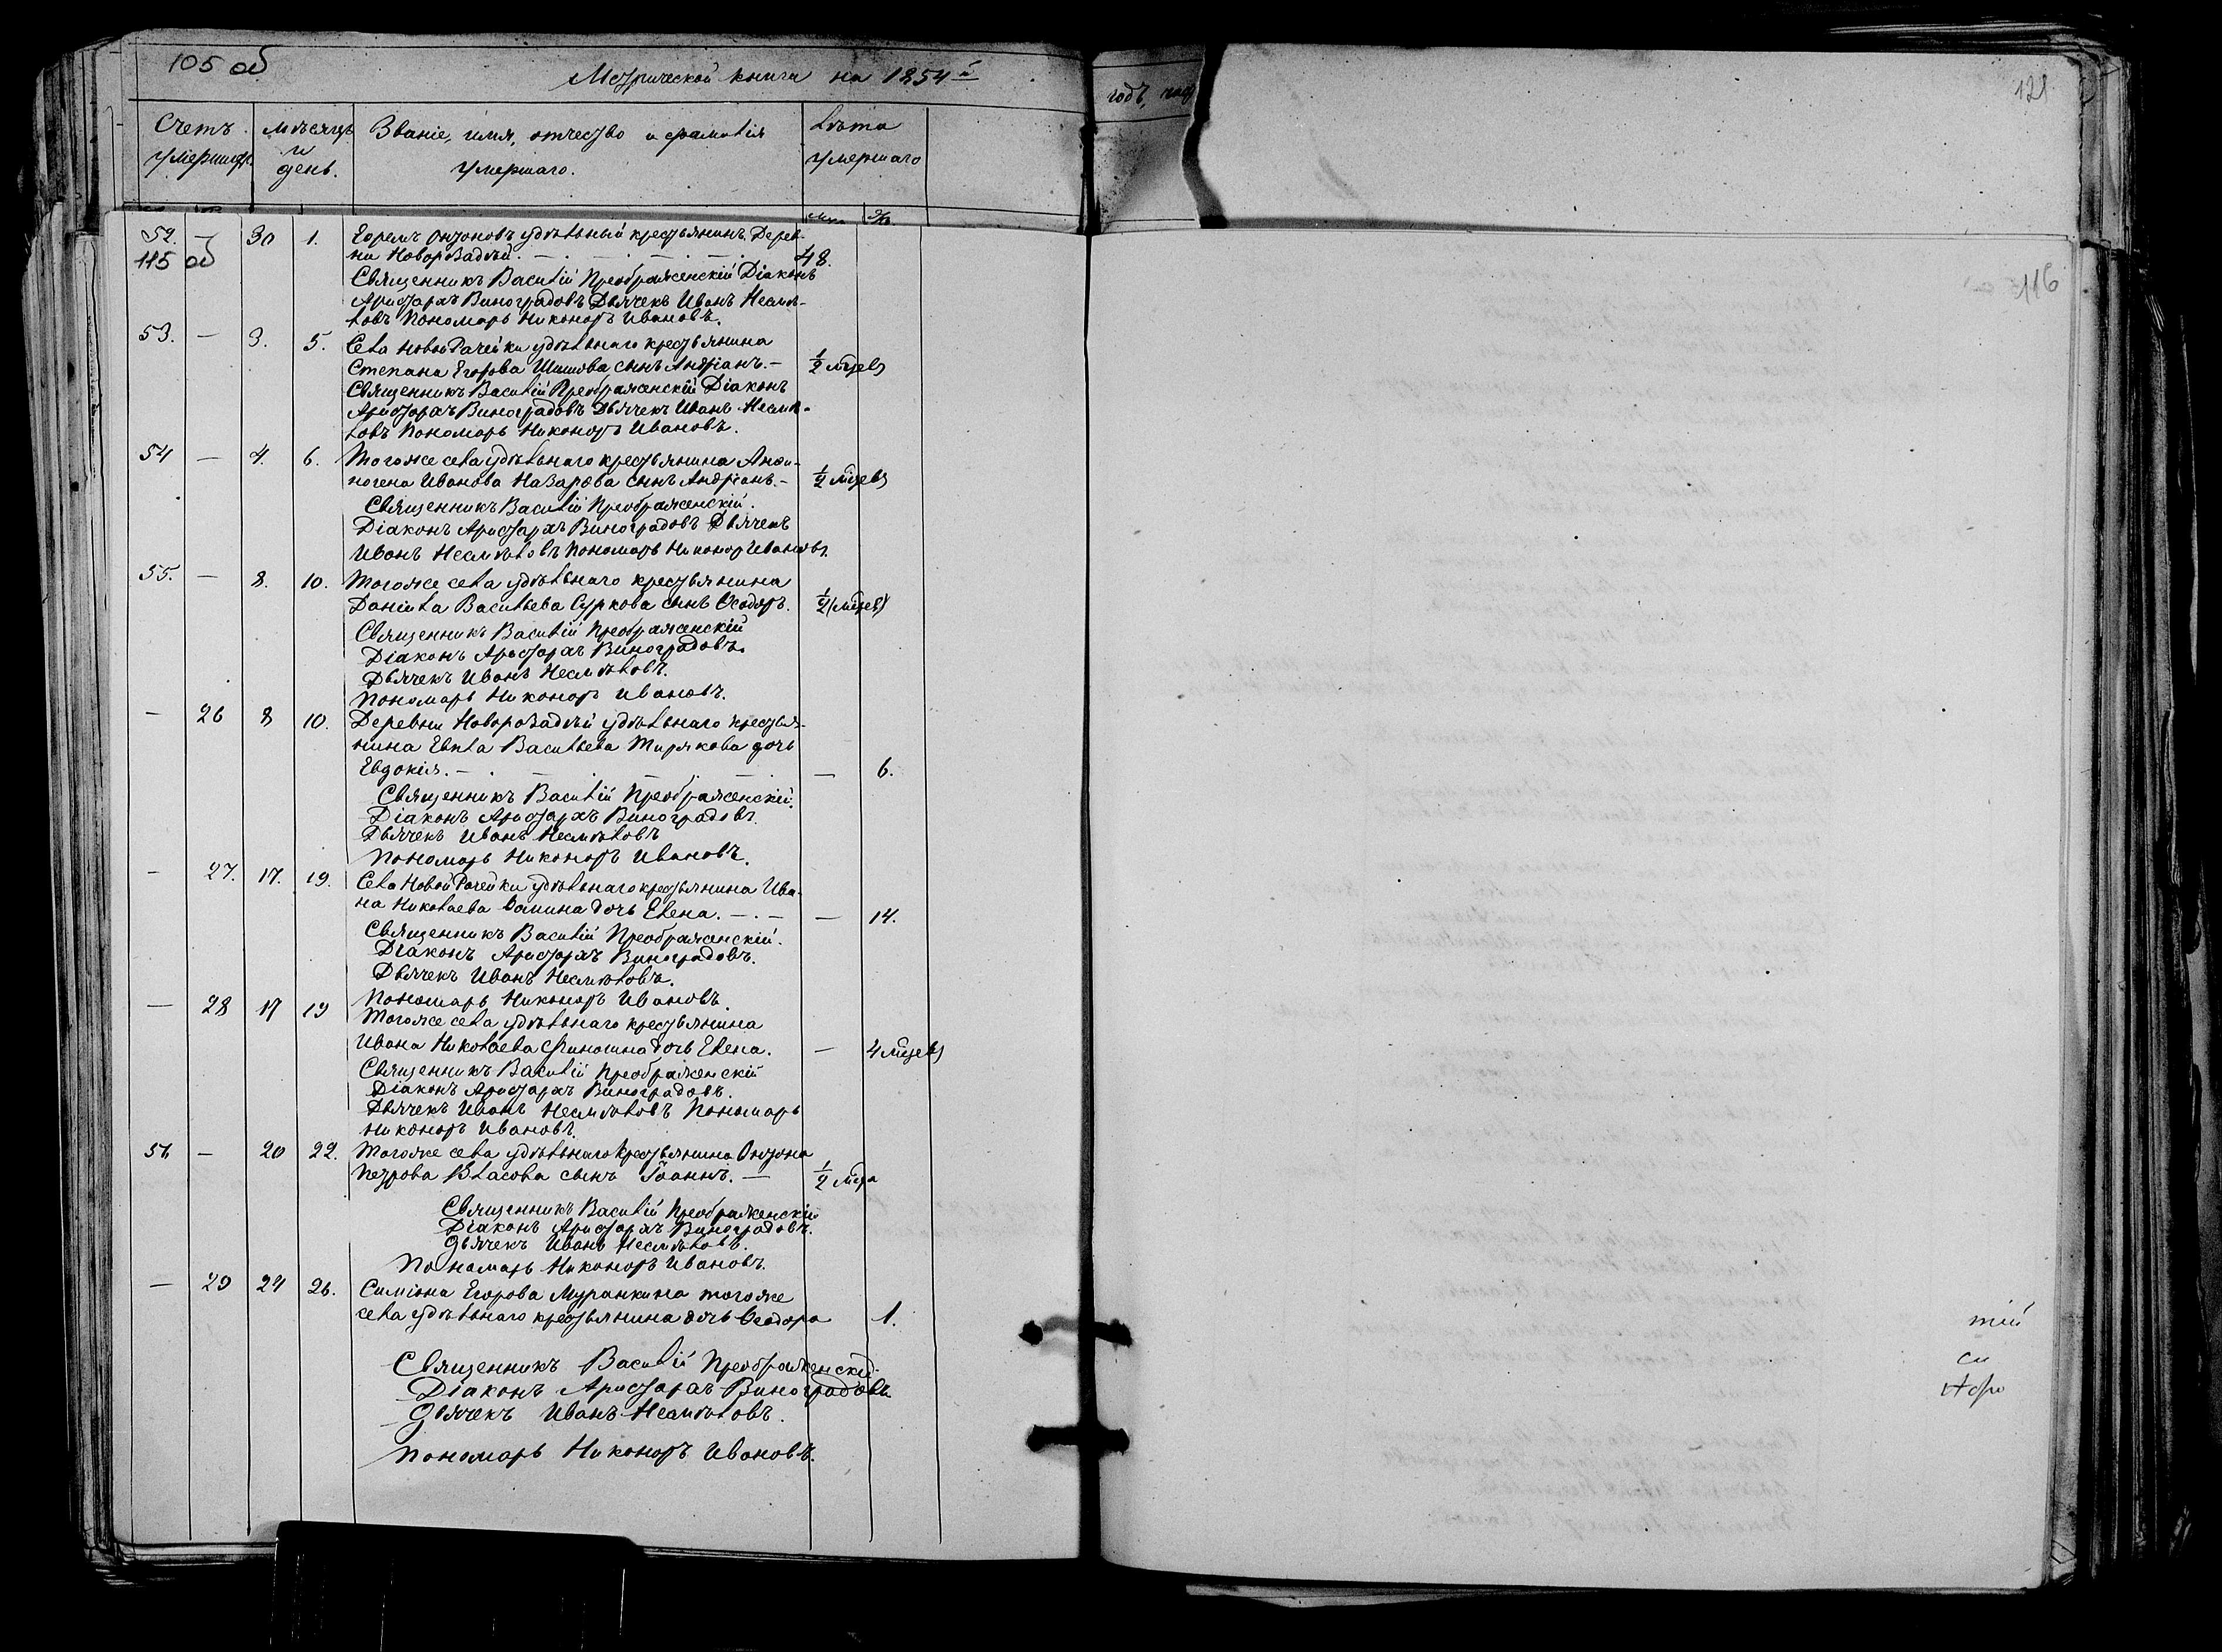 105 об
Метрической книги на 1854й
годъ, час
121
Счетъ умершихъ.
Мѣсяцъ и день.
Званіе, имя, отчество и фамилія умершаго.
Лѣта умершаго
52. — 30 1. Ефремъ Антоновъ удѣльный крестьянинъ Дерев-
115 об ни Новорозадѣй. — . — . — . — 48.
116
Священникъ Василій Преображенскій Діаконъ
Аристархъ Виноградовъ Дьячекъ Иванъ Несмѣ-
ловъ Пономарь Никоноръ Ивановъ.
53. — 3. 5. Села Новой Рачейки удѣльнаго крестьянина
Степана Егорова Шишова сынъ Андріанъ. — ½ мѣцевъ
Священникъ Василій Преображенскій Діаконъ
Аристархъ Виноградовъ Дьячекъ Иванъ Несмѣ-
ловъ Пономарь Никоноръ Ивановъ.
54 — 4. 6. Тогоже села удѣльнаго крестьянина Анфи-
ногена Иванова Назарова сынъ Андріанъ. — ½ мѣцевъ
Священникъ Василій Преображенскій.
Діаконъ Аристархъ Виноградовъ Дьячекъ
Иванъ Несмѣловъ Пономарь Никоноръ Ивановъ.
55. — 8. 10. Тогоже села удѣльнаго крестьянина
Даніила Васильева Суркова сынъ Ѳеодоръ. ½ (мѣцевъ)
Священникъ Василій Преображенскій
Діаконъ Аристархъ Виноградовъ.
Дьячекъ Иванъ Несмѣловъ.
Пономарь Никоноръ Ивановъ.
— 26 8 10. Деревни Новорозадѣй удѣльнаго крестья-
нина Евпла Васильева Тирякова дочь
Евдокія. — . — . — . — 6.
Священникъ Василій Преображенскій.
Діаконъ Аристархъ Виноградовъ.
Дьячекъ Иванъ Несмѣловъ
Пономарь Никоноръ Ивановъ.
— 27. 17. 19. Села Новой Рачейки удѣльнаго крестьянина Ива-
на Николаева Фомина дочь Елена. — . — — 14.
Священникъ Василій Преображенскій.
Діаконъ Аристархъ Виноградовъ.
Дьячекъ Иванъ Несмѣловъ.
Пономарь Никоноръ Ивановъ.
— 28 17 19 Тогоже села удѣльнаго крестьянина
Ивана Николаева дочь Елена. — 4 мѣцевъ
Священникъ Василій Преображенскій
Діаконъ Аристархъ Виноградовъ.
Дьячекъ Иванъ Несмѣловъ Пономарь
Никоноръ Ивановъ.
56 — 20 22. Тогоже села удѣльнаго крестьянина Антона
Петрова Власова сынъ Іоаннъ. — ½ мѣца
Священникъ Василій Преображенскій
Діаконъ Аристархъ Виноградовъ.
Дьячекъ Иванъ Несмѣловъ.
Пономарь Никоноръ Ивановъ.
— 29 24 26. Симіона Егорова Муранкина тогоже
села удѣльнаго крестьянина дочь Ѳеодора 1.
Священникъ Василій Преображенскій.
Діаконъ Аристархъ Виноградовъ
Дьячекъ Иванъ Несмѣловъ.
Пономарь Никоноръ Ивановъ.
тій
си